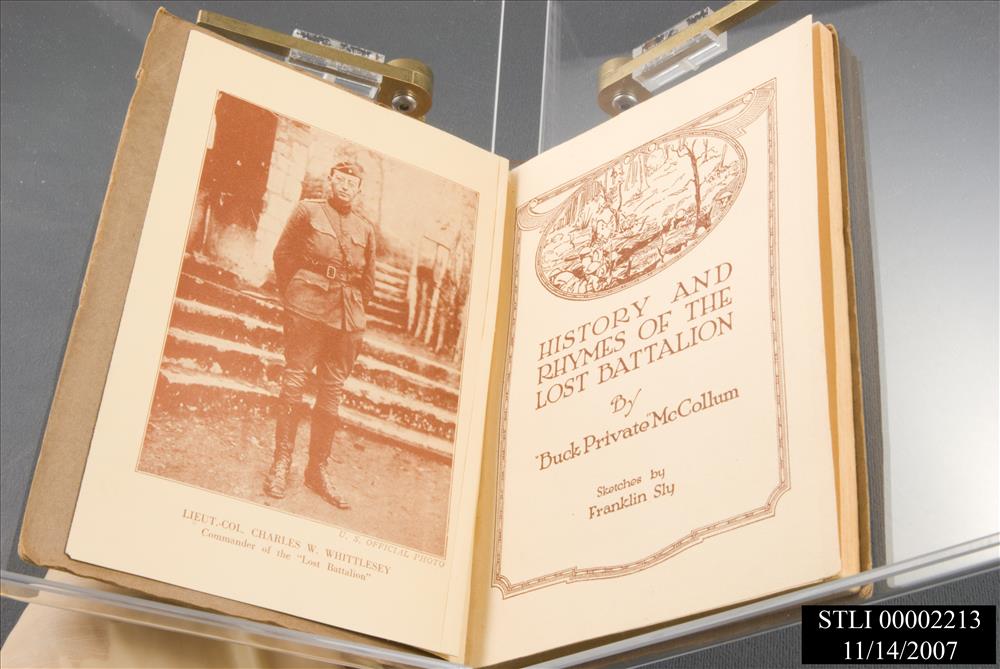 U. S. OFFICIAL PHOTO
LIEUT.-COL. CHARLES W. WHITTLESEY
Commander of the "Lost Battalion"
HISTORY AND
RHYMES OF THE
LOST BATTALION
By
"Buck Private" McCollum
Sketches by
Franklin Sly
STLI 00002213
11/14/2007